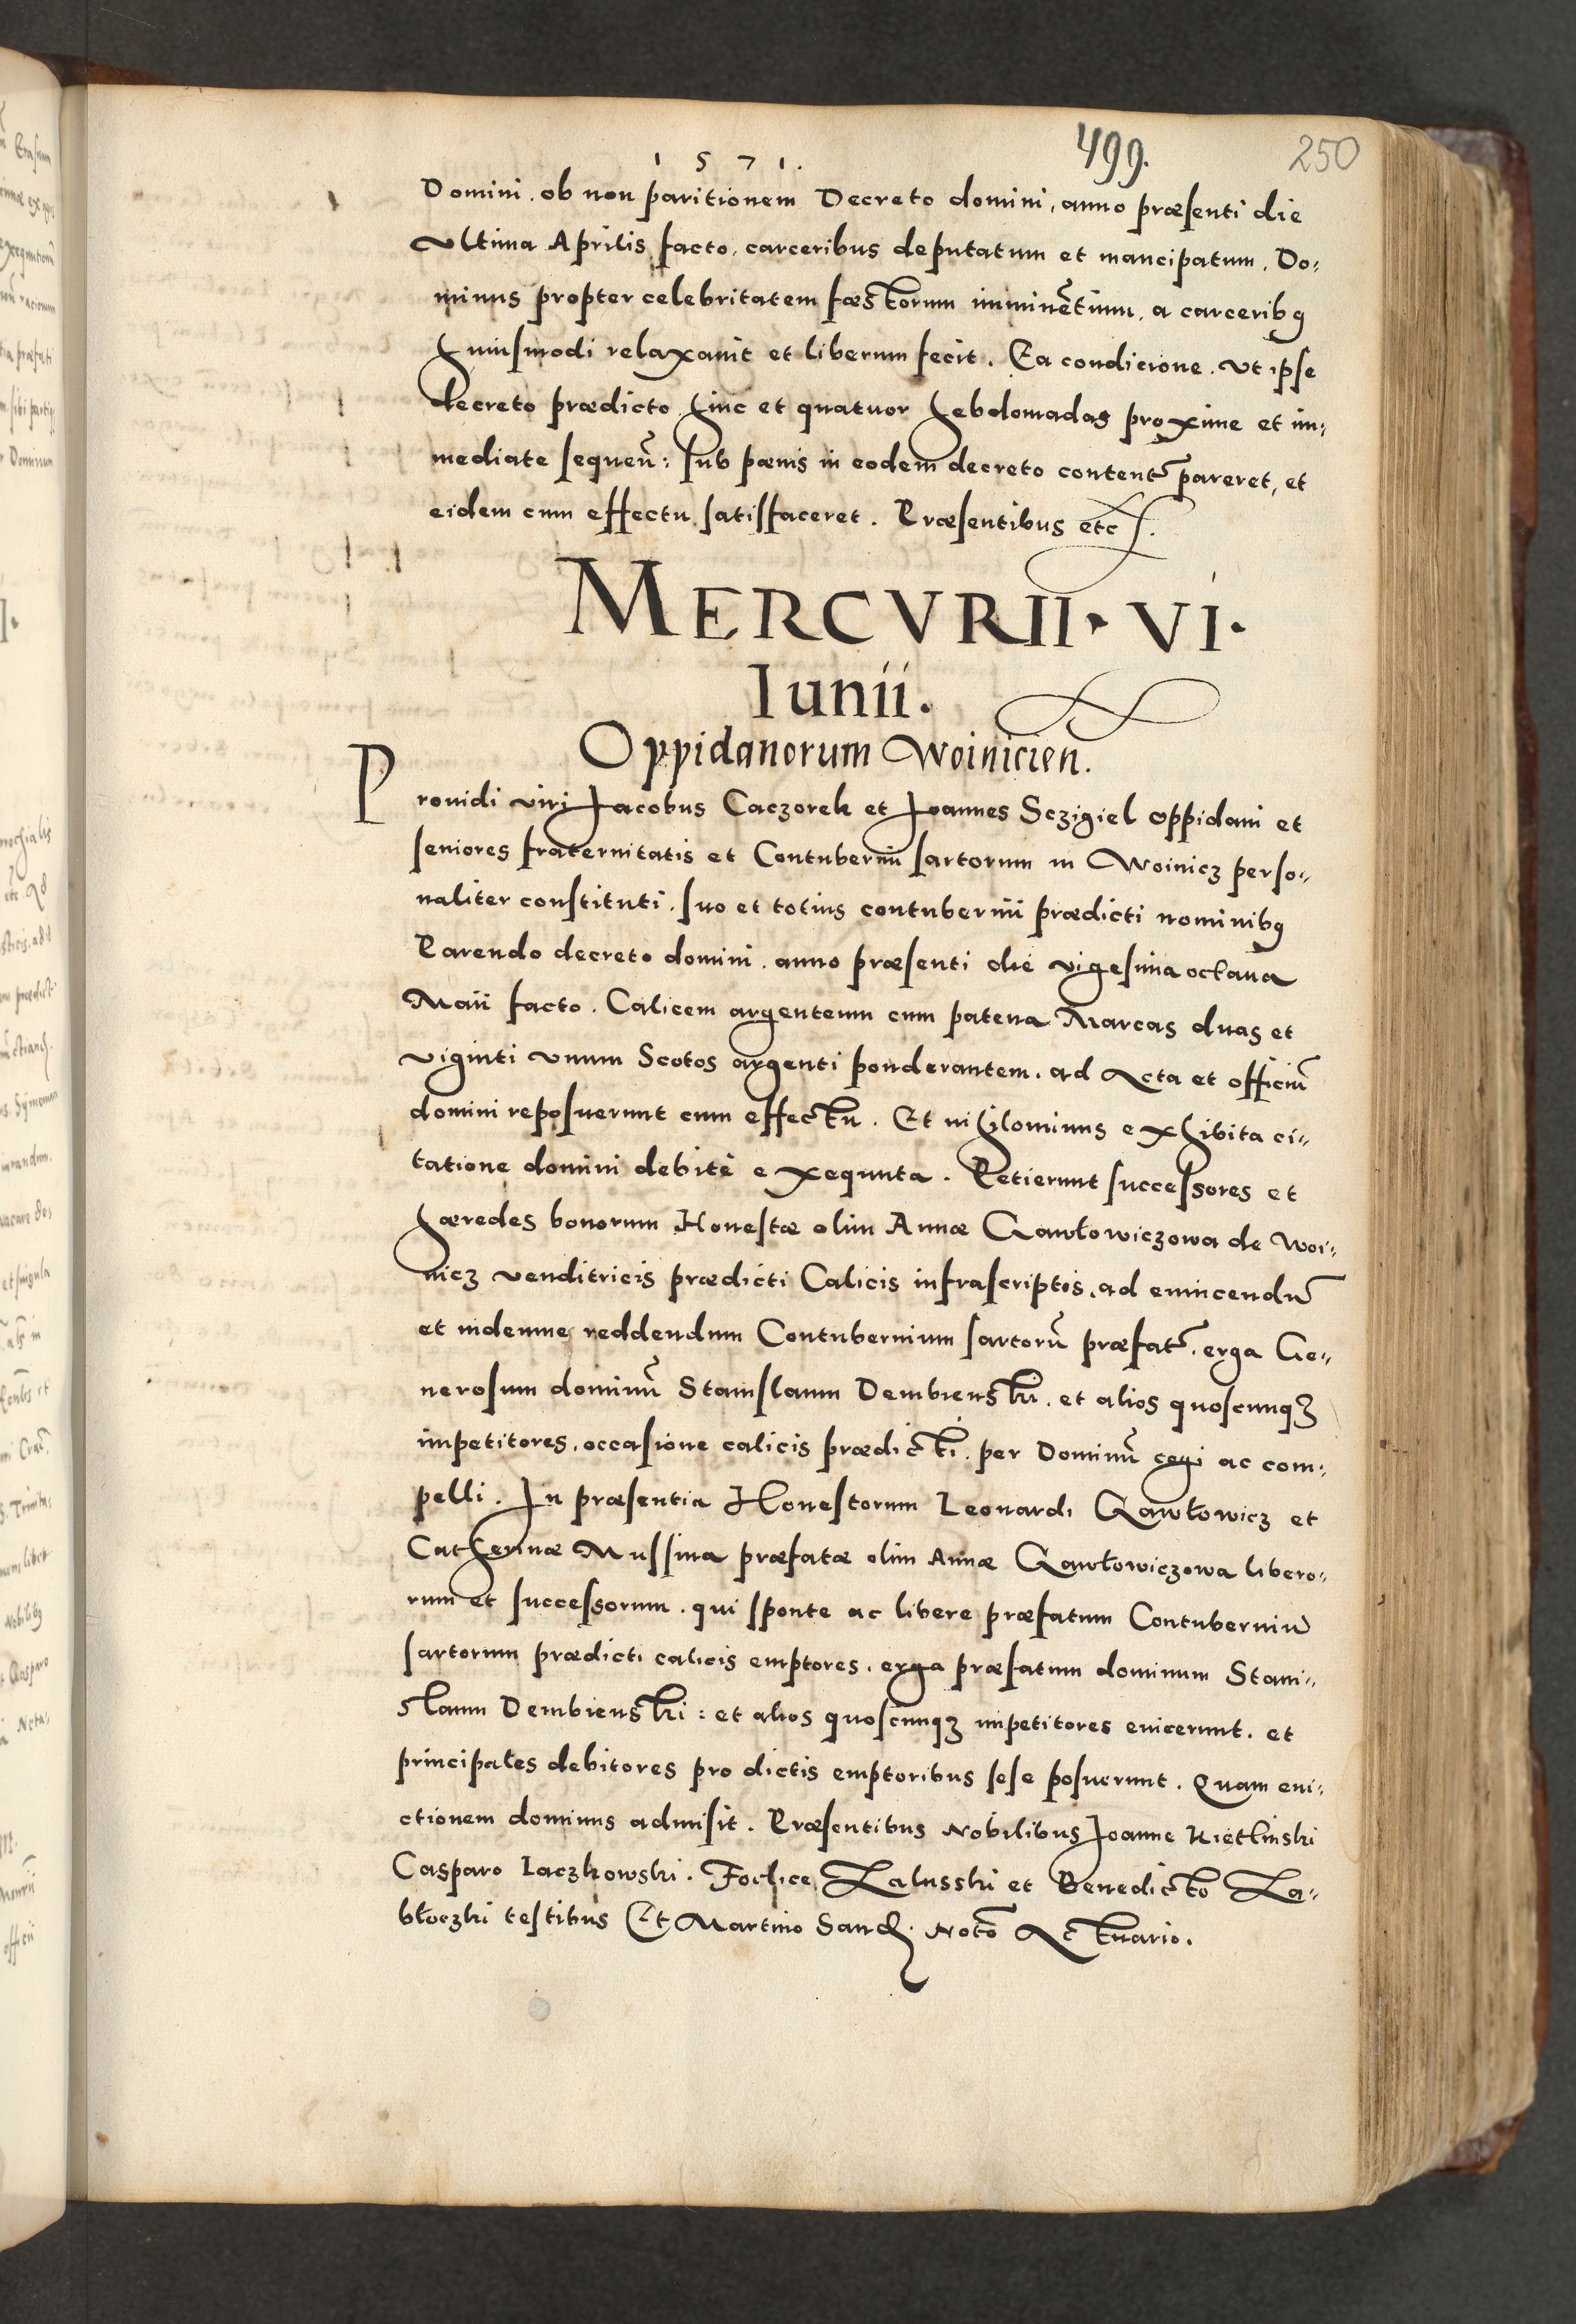 1571.
499.
250
Domini. ob non paritionem Decreto domini, anno præsenti die
Vltima Aprilis facto, carceribus deputatum et mancipatum. Do-
minus propter celebritatem fæstorum imminẽtium, a carceribꝯ
huiusmodi relaxauit et liberum fecit. Ea condicione. Vt ipse
decreto prædicto hinc et quatuor hebdomadas proxime et im-
mediate sequeñ: sub pænis in eodem decreto content̃ pareret, et
eidem cum effectu satisfaceret. Præsentibus etc.
MERCVRII. VI.
Iunii.
Oppidanorum Woinicien.
Prouidi viri Jacobus Caczorek et Joannes Sczigiel oppidani et
seniores fraternitatis et Contubernii sartorum in Woinicz perso-
naliter constituti. suo et totius contubernii prædicti nominibꝯ
Parendo decreto domini. anno præsenti die vigesima octaua
Maii facto. Calicem argenteum cum patena Marcas duas et
viginti vnum Scotos argenti ponderantem. ad Acta et officiũ
domini reposuerunt cum effectu. Et nihilominus exhibita ci-
tatione domini debitè exequuta. Petierunt successores et
hæredes bonorum Honestæ olim Annæ Gawłowiczowa de Woi-
nicz venditricis prædicti Calicis infrascriptos. ad euincendũ
et indemne reddendum Contubernium sartorũ præfat̃. erga Ge-
nerosum dominũ Stanislaum Dembienski. et alios quoscunqꝫ
impetitores. occasione calicis prædicti. per Dominũ cogi ac com-
pelli. In præsentia Honestorum Leonardi Gawłowicz et
Catherinæ Mussina præfatæ olim Annæ Gawłowiczowa libero-
rum et successorum. qui sponte ac libere præfatum Contuberniũ
sartorum prædicti calicis emptores. erga præfatum dominum Stani-
slaum Dembienski: et alios quoscunqꝫ impetitores euicerunt. et
principales debitores pro dictis emptoribus sese posuerunt. Quam eui-
ctionem dominus admisit. Præsentibus Nobilibus Joanne Kietlinski
Casparo Iaczkowski. Foelice Zalusski et Benedicto Za-
błoczki testibus Et Martino Sand. Noto Actuario.